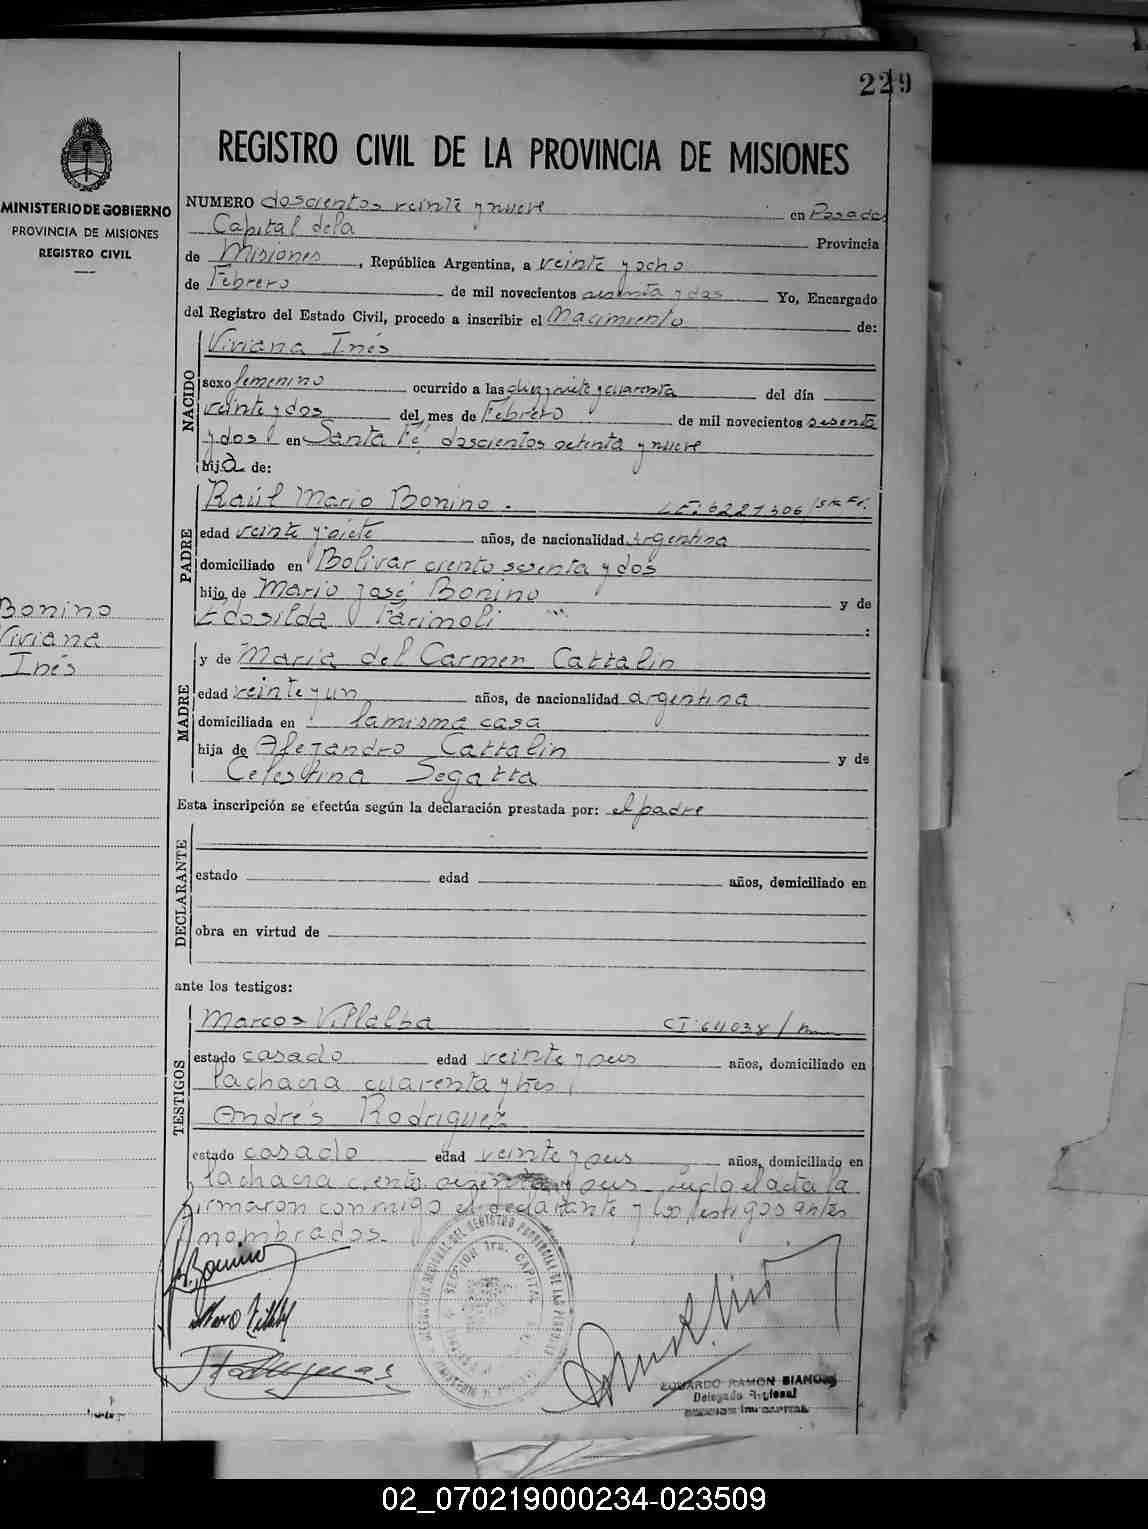 229
REGISTRO CIVIL DE LA PROVINCIA DE MISIONES
MINISTERIO DE GOBIERNO
PROVINCIA DE MISIONES
REGISTRO CIVIL
NUMERO doscientos veinte y nueve en Posadas
Capital de la Provincia
de Misiones, República Argentina, a veinte y ocho
de Febrero de mil novecientos sesenta y dos Yo, Encargado
del Registro del Estado Civil, procedo a inscribir el Nacimiento de:
NACIDO
Viviana Inés
sexo femenino ocurrido a las diez y siete y cuarenta del día
veinte y dos del mes de Febrero de mil novecientos sesenta
y dos en Santa Fé doscientos setenta y nueve
hija de:
PADRE
Raúl Mario Bonino. L.E: 6221306/Sta Fé.
edad veinte y siete años, de nacionalidad Argentina
domiciliado en Bolivar ciento sesenta y dos
hijo de Mario José Bonino y de
Edosilda Parimoli :
Bonino
Viviana
Inés
MADRE
y de María del Carmen Cattalin
edad veinte y un años, de nacionalidad argentina
domiciliada en la misma casa
hija de Alejandro Cattalin y de
Celestina Segatta
Esta inscripción se efectúa según la declaración prestada por: el padre
DECLARANTE
estado edad años, domiciliado en
obra en virtud de
ante los testigos:
TESTIGOS
Marcos Villalba CI: 64038/
estado casado edad veinte y seis años, domiciliado en
la chacra cuarenta y tres,
Andrés Rodriguez
estado casado edad veinte y seis años, domiciliado en
la chacra ciento y seis leida el acta la
firmaron conmigo el declarante y los testigos antes
nombrados.
Bonino
SECCION 1ra. CAPITAL
EDUARDO RAMON BIANCHI
Delegado Regional
SECCION 1ra CAPITAL
02_070219000234-023509